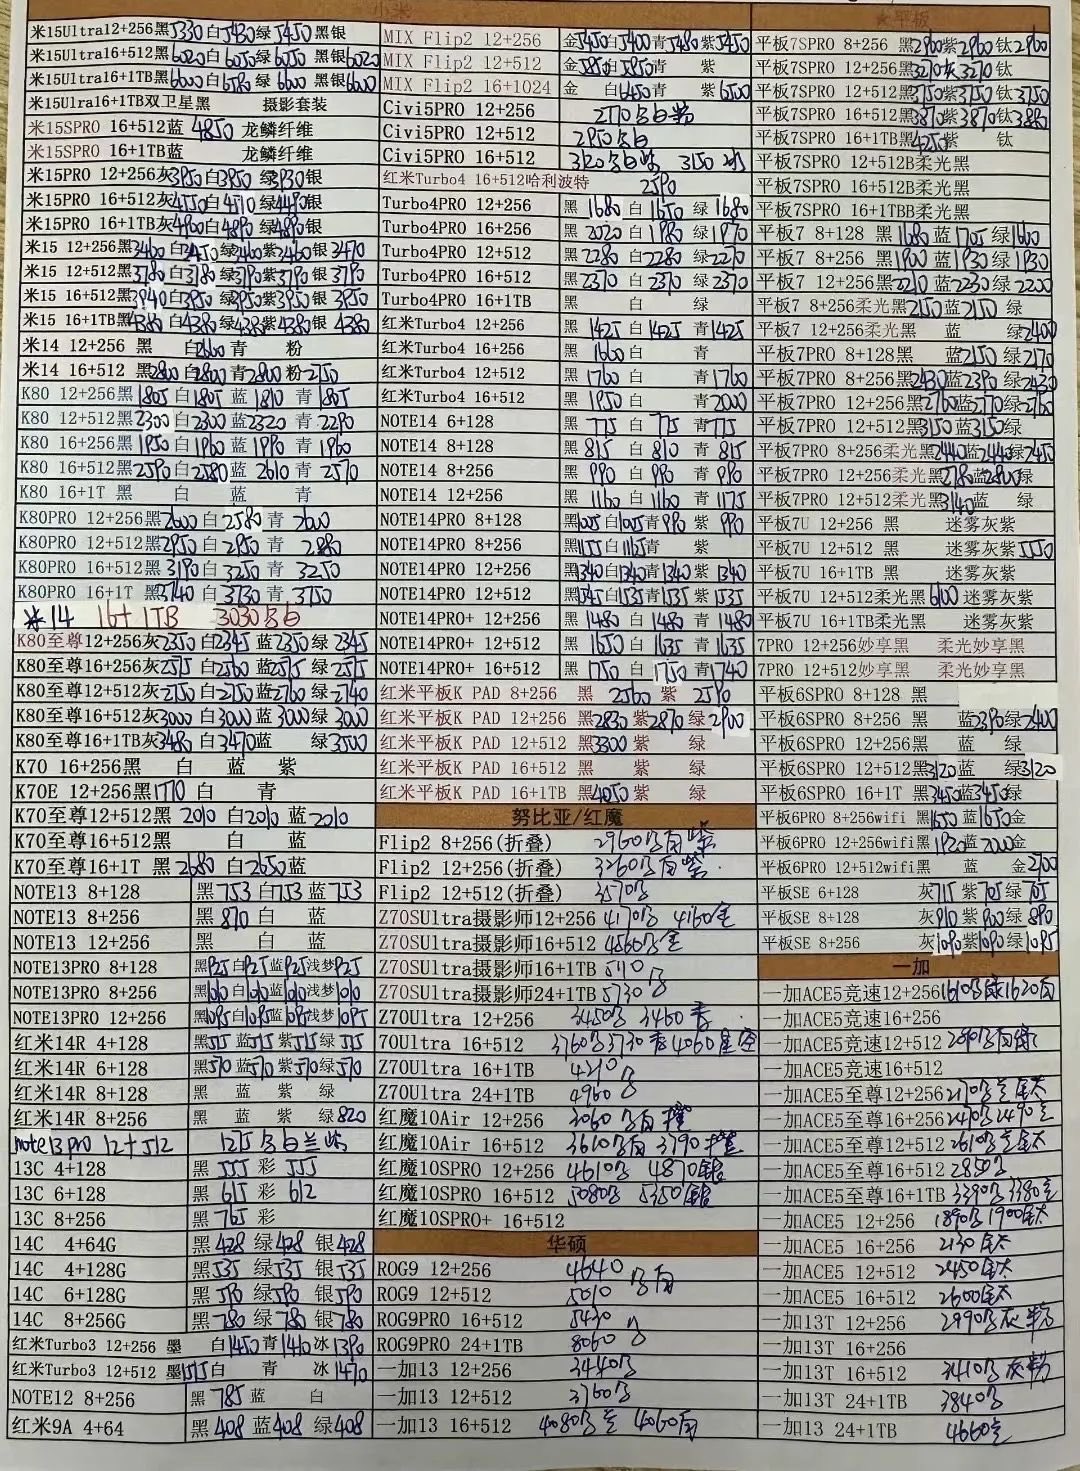 小米
米15Ultra12+256黑5330白5430绿5450黑银
米15Ultra16+512黑6020白6050绿6050黑银6020
米15Ultra16+1TB黑6600白6580绿6600黑银6600
米15Ulra16+1TB双卫星黑 摄影套装
米15SPRO 16+512蓝 4850 龙鳞纤维
米15SPRO 16+1TB蓝 龙鳞纤维
米15PRO 12+256灰3950白3950绿3930银
米15PRO 16+512灰4550白4510绿4490银
米15PRO 16+1TB灰4900白4890绿4890银
米15 12+256黑3460白3450绿3460紫3460银3470
米15 12+512黑3780白3780绿3790紫3790银3790
米15 16+512黑3940白3950绿3950紫3950银3950
米15 16+1TB黑4380白4380绿4385紫4380银4380
米14 12+256 黑 白2660青 粉
米14 16+512 黑2800白2800青2800粉2750
K80 12+256黑1805白1805蓝1810青1805
K80 12+512黑2300白2300蓝2320青2290
K80 16+256黑1950白1960蓝1990青1960
K80 16+512黑2590白2580蓝2610青2570
K80 16+1T 黑 白 蓝 青
K80PRO 12+256黑2600白2580青2600
K80PRO 12+512黑2950白2950青2980
K80PRO 16+512黑3190白3250青3250
K80PRO 16+1T黑3740白3730青3750
米14 16+1TB 3030黑白
K80至尊12+256灰2350白2345蓝2350绿2345
K80至尊16+256灰2575白2560蓝2575绿2575
K80至尊12+512灰2750白2750蓝2760绿2740
K80至尊16+512灰3000白3000蓝3000绿3000
K80至尊16+1TB灰3480白3470蓝 绿3500
K70 16+256黑 白 蓝 紫
K70E 12+256黑1770白 青
K70至尊12+512黑2010白2010蓝2010
K70至尊16+512黑 白 蓝
K70至尊16+1T黑2680白2650蓝
NOTE13 8+128 黑753白753蓝753
NOTE13 8+256 黑870白 蓝
NOTE13 12+256 黑 白 蓝
NOTE13PRO 8+128 黑925白925蓝925浅梦925
NOTE13PRO 8+256 黑1010白1010蓝1010浅梦1010
NOTE13PRO 12+256 黑1095白1095蓝1095浅梦1095
红米14R 4+128 黑515蓝515紫515绿515
红米14R 6+128 黑570蓝570紫570绿570
红米14R 8+128 黑 蓝 紫 绿
红米14R 8+256 黑 蓝 紫 绿820
note13pro 12+512 1215黑白兰紫
13C 4+128 黑555彩555
13C 6+128 黑615彩612
13C 8+256 黑765彩
14C 4+64G 黑428绿428银428
14C 4+128G 黑535绿535银535
14C 6+128G 黑590绿590银590
14C 8+256G 黑780绿780银780
红米Turbo3 12+256 墨 白1450青1410冰1390
红米Turbo3 12+512 墨1515白 青 冰1470
NOTE12 8+256 黑785蓝 白
红米9A 4+64 黑408蓝408绿408
MIX Flip2 12+256 金5450白5400青5480紫5450
MIX Flip2 12+512 金5850白5950青 紫
MIX Flip2 16+1024 金 白6450青 紫6500
Civi5PRO 12+256 2770黑白紫
Civi5PRO 12+512 2950黑白
Civi5PRO 16+512 3120黑白紫 3150冰
红米Turbo4 16+512哈利波特 2590
Turbo4PRO 12+256 黑1680白1650绿1680
Turbo4PRO 16+256 黑2020白1980绿1970
Turbo4PRO 12+512 黑2280白2280绿2270
Turbo4PRO 16+512 黑2370白2370绿2370
Turbo4PRO 16+1TB 黑 白 绿
红米Turbo4 12+256 黑1425白1425青1425
红米Turbo4 16+256 黑1660白 青
红米Turbo4 12+512 黑1760白 青1760
红米Turbo4 16+512 黑1950白 青2000
NOTE14 6+128 黑775白775青775
NOTE14 8+128 黑815白810青815
NOTE14 8+256 黑990白990青990
NOTE14 12+256 黑1160白1160青1175
NOTE14PRO 8+128 黑1005白1005青990紫990
NOTE14PRO 8+256 黑1155白1165青 紫
NOTE14PRO 12+256 黑1340白1340青1340紫1340
NOTE14PRO 12+512 黑1545白1535青1535紫1535
NOTE14PRO+ 12+256 黑1480白1480青1480
NOTE14PRO+ 12+512 黑1650白1635青1635
NOTE14PRO+ 16+512 黑1750白1750青1740
红米平板K PAD 8+256 黑2560紫2590
红米平板K PAD 12+256 黑2830紫2870绿2900
红米平板K PAD 12+512 黑3300紫 绿
红米平板K PAD 16+512 黑 紫 绿
红米平板K PAD 16+1TB 黑4050紫 绿
努比亚/红魔
Flip2 8+256(折叠) 2960黑白紫
Flip2 12+256(折叠) 3260黑白紫
Flip2 12+512(折叠) 3570黑
Z70SUltra摄影师12+256 4170黑 4160金
Z70SUltra摄影师16+512 4560黑金
Z70SUltra摄影师16+1TB 5110黑
Z70SUltra摄影师24+1TB 5730黑
Z70Ultra 12+256 3450黑 3460
70Ultra 16+512 3760黑3730 4060星空
Z70Ultra 16+1TB 4210黑
Z70Ultra 24+1TB 4960黑
红魔10Air 12+256 3060黑白橙
红魔10Air 16+512 3610黑白3790橙
红魔10SPRO 12+256 4610黑 4870银
红魔10SPRO 16+512 5080黑 5350银
红魔10SPRO+ 16+512
华硕
ROG9 12+256 4640黑白
ROG9 12+512 5010
ROG9PRO 16+512 5430黑
ROG9PRO 24+1TB 8060
一加13 12+256 3440黑
一加13 12+512 3760黑
一加13 16+512 4080黑兰 4060白
★平板
平板7SPRO 8+256 黑2960紫2960钛2960
平板7SPRO 12+256黑3270灰3270钛
平板7SPRO 12+512黑3750紫3750钛3750
平板7SPRO 16+512黑3870紫3870钛3880
平板7SPRO 16+1TB黑4250紫 钛
平板7SPRO 12+512B柔光黑
平板7SPRO 16+512B柔光黑
平板7SPRO 16+1TBB柔光黑
平板7 8+128 黑1680蓝1705绿1660
平板7 8+256 黑1900蓝1930绿1930
平板7 12+256黑2210蓝2230绿2200
平板7 8+256柔光黑2150蓝2150绿
平板7 12+256柔光黑 蓝 绿2400
平板7PRO 8+128黑 蓝2150绿2170
平板7PRO 8+256黑2430蓝2390绿2430
平板7PRO 12+256黑2760蓝2770绿2760
平板7PRO 12+512黑3150蓝3150绿
平板7PRO 8+256柔光黑2440蓝2440绿2450
平板7PRO 12+256柔光黑2780蓝2800绿
平板7PRO 12+512柔光黑3140蓝 绿
平板7U 12+256 黑 迷雾灰紫
平板7U 12+512 黑 迷雾灰紫5550
平板7U 16+1TB 黑 迷雾灰紫
平板7U 12+512柔光黑6100迷雾灰紫
平板7U 16+1TB柔光黑 迷雾灰紫
7PRO 12+256妙享黑 柔光妙享黑
7PRO 12+512妙享黑 柔光妙享黑
平板6SPRO 8+128 黑
平板6SPRO 8+256 黑 蓝2390绿2400
平板6SPRO 12+256黑 蓝 绿
平板6SPRO 12+512黑3120蓝 绿3120
平板6SPRO 16+1T 黑3450蓝3450绿
平板6PRO 8+256wifi 黑1650蓝1650金
平板6PRO 12+256wifi黑1920蓝2000金
平板6PRO 12+512wifi黑 蓝 金2700
平板SE 6+128 灰715紫705绿705
平板SE 8+128 灰910紫900绿890
平板SE 8+256 灰1090紫1090绿1095
一加
一加ACE5竞速12+256 1610黑绿1620白
一加ACE5竞速16+256
一加ACE5竞速12+512 2090黑白绿
一加ACE5竞速16+512
一加ACE5至尊12+256 2170黑兰钛
一加ACE5至尊16+256 2470黑2490兰
一加ACE5至尊12+512 2610黑兰钛
一加ACE5至尊16+512 2850黑
一加ACE5至尊16+1TB 3390黑3380兰
一加ACE5 12+256 1890黑1900钛
一加ACE5 16+256 2130钛
一加ACE5 12+512 2450钛
一加ACE5 16+512 2600钛
一加13T 12+256 2990黑灰粉
一加13T 16+256
一加13T 16+512 3410黑灰粉
一加13T 24+1TB 3840黑
一加13 24+1TB 4660兰